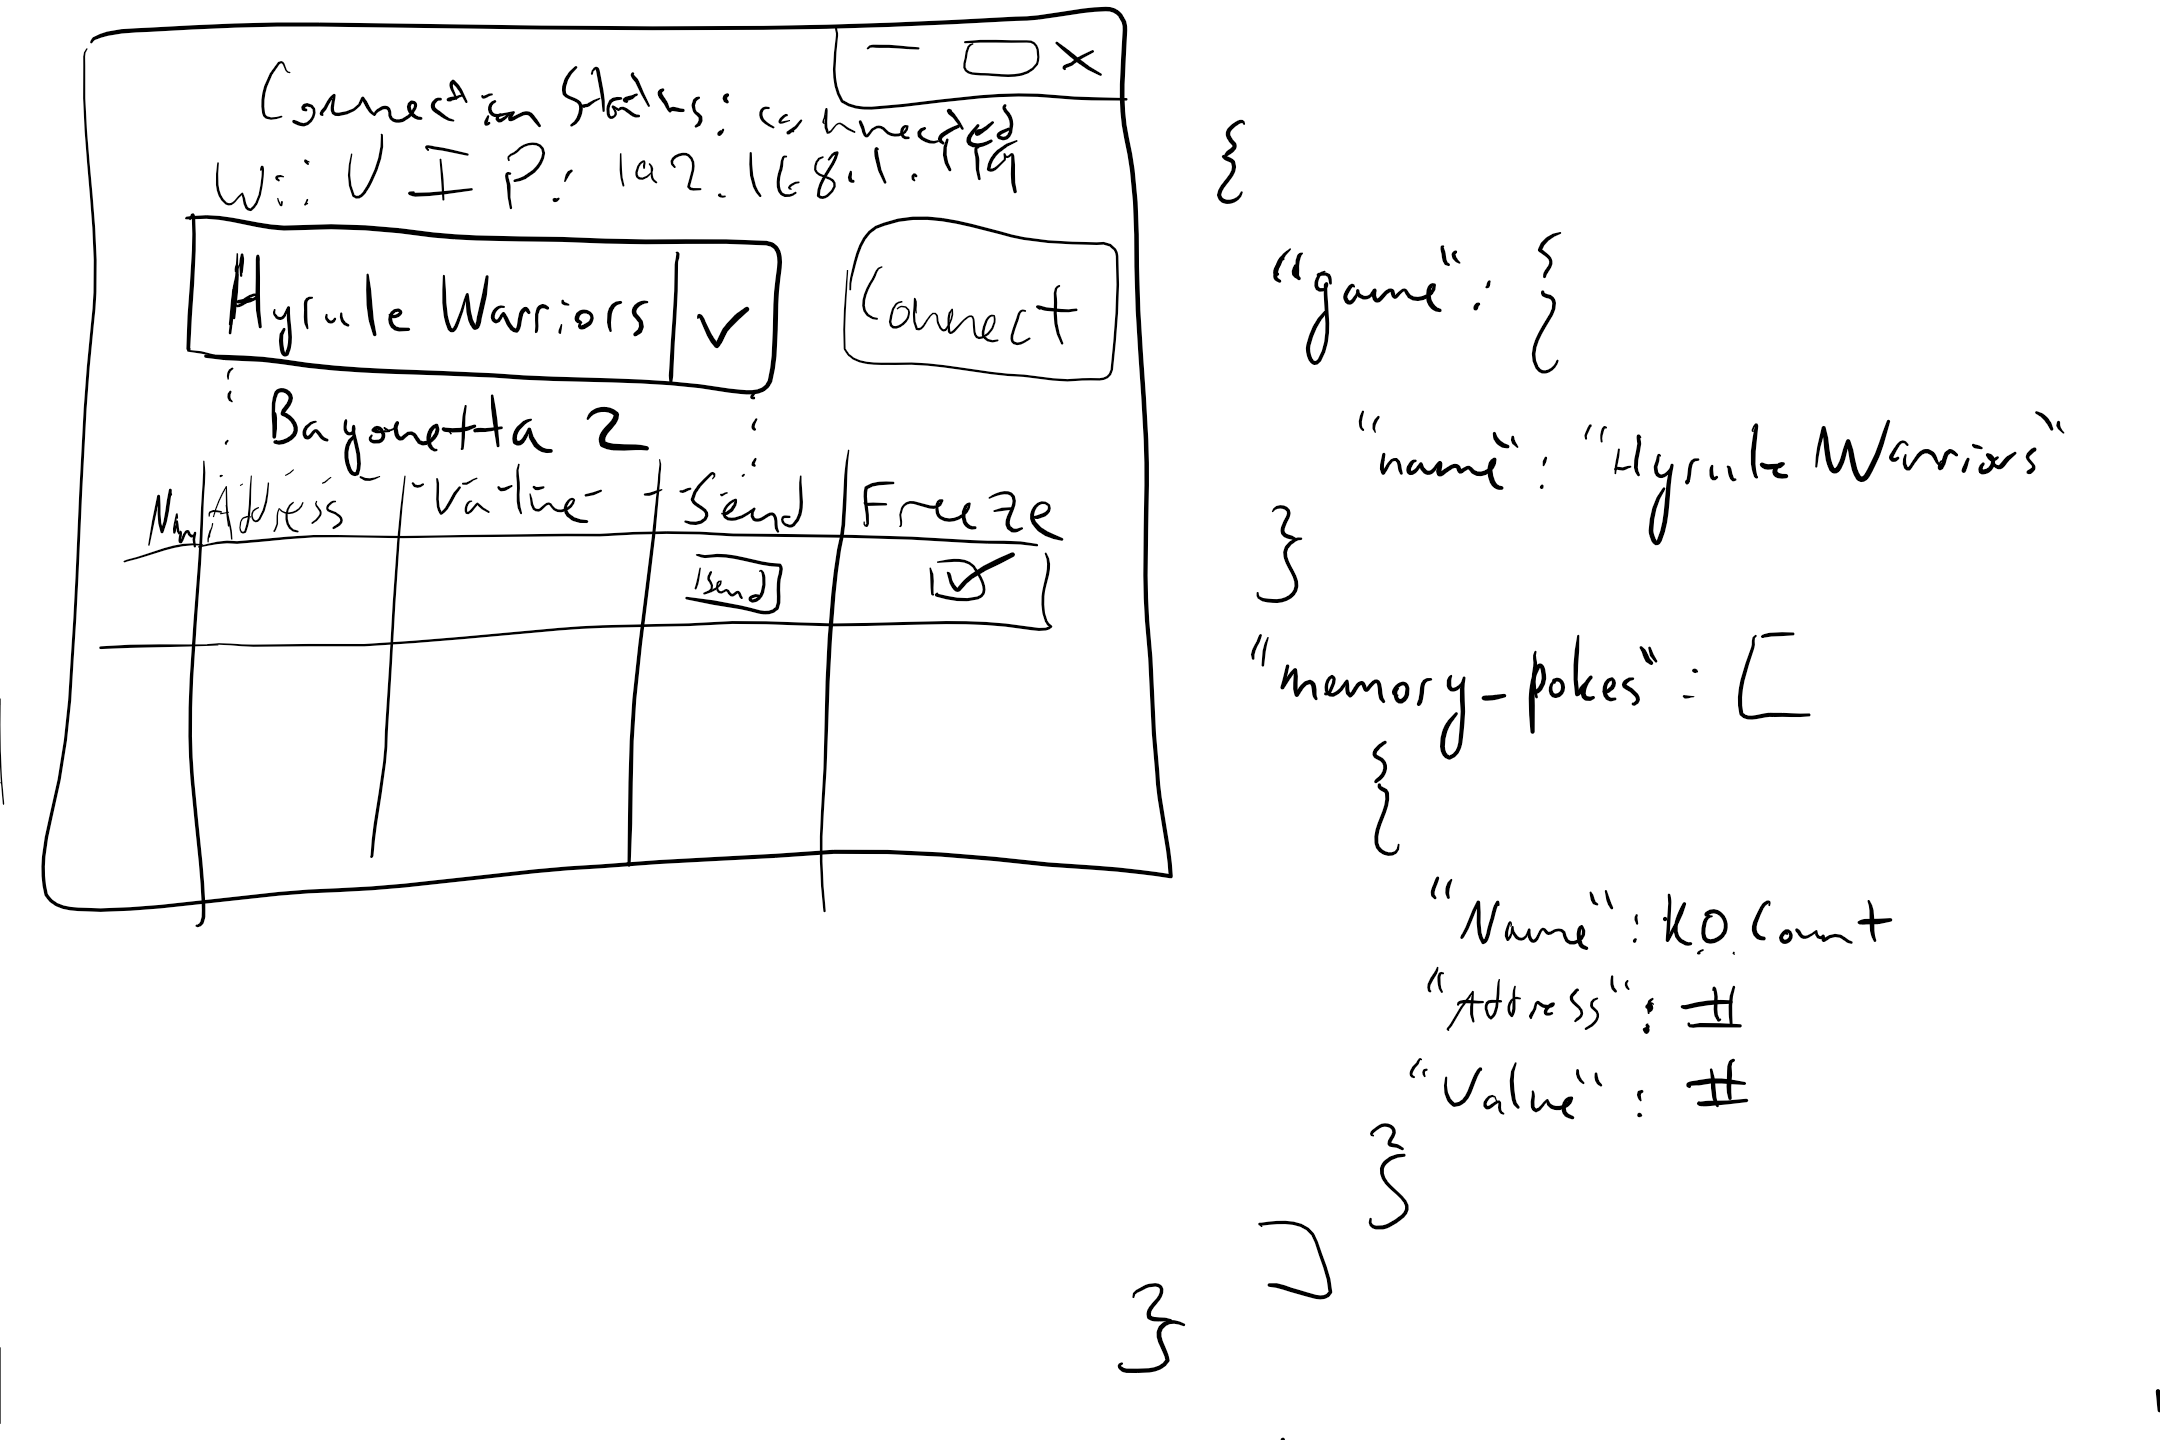 Connection Status: connected
Wii U IP: 192.168.1.119
Hyrule Warriors
Connect
Bayonetta 2
Nam Address Value Send Freeze
Send
{
"game": {
"name": "Hyrule Warriors"
}
"memory_pokes": [
{
"Name": KO Count
"Address": #
"Value": #
}
]
}